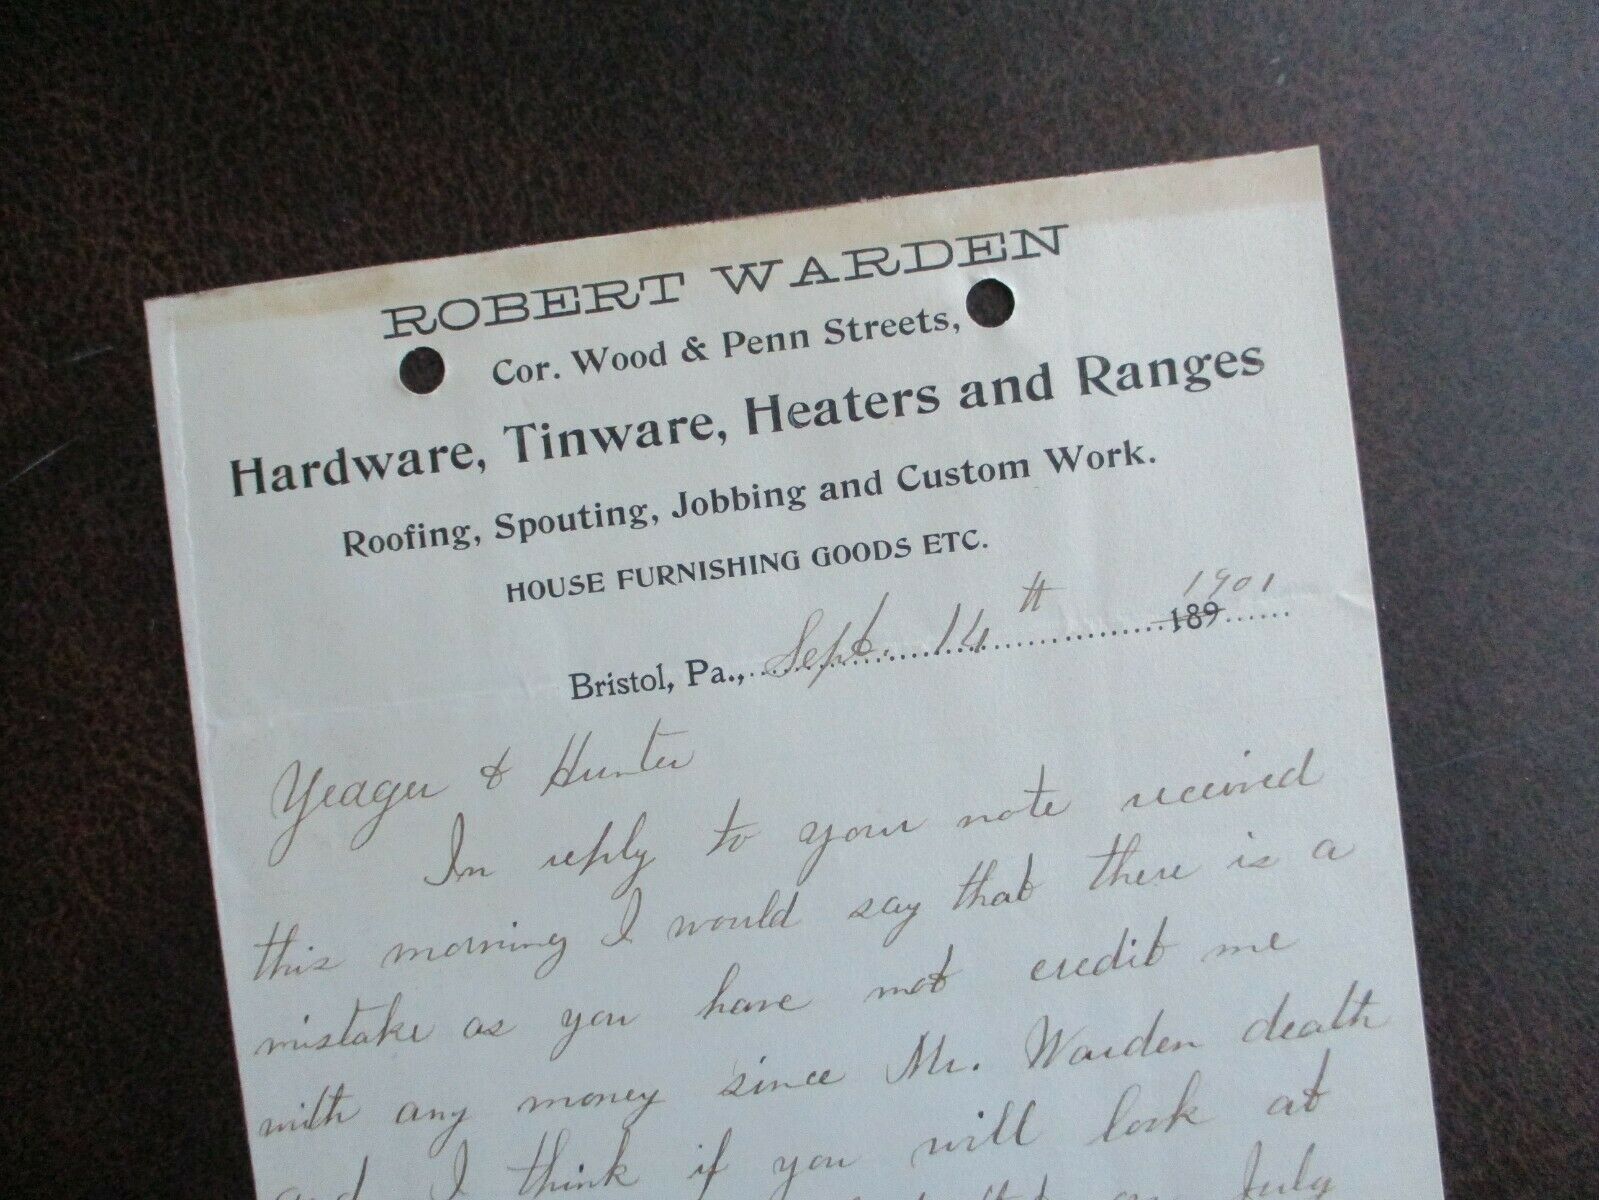 ROBERT WARDEN
Cor. Wood & Penn Streets,
Hardware, Tinware, Heaters and Ranges
Roofing, Spouting, Jobbing and Custom Work.
HOUSE FURNISHING GOODS ETC.
Bristol, Pa., Sept. 14th 189 1901
Yeager & Hunter
In reply to your note received
this morning I would say that there is a
mistake as you have not credit me
with any money since Mr. Warden death
and I think if you will look at
July